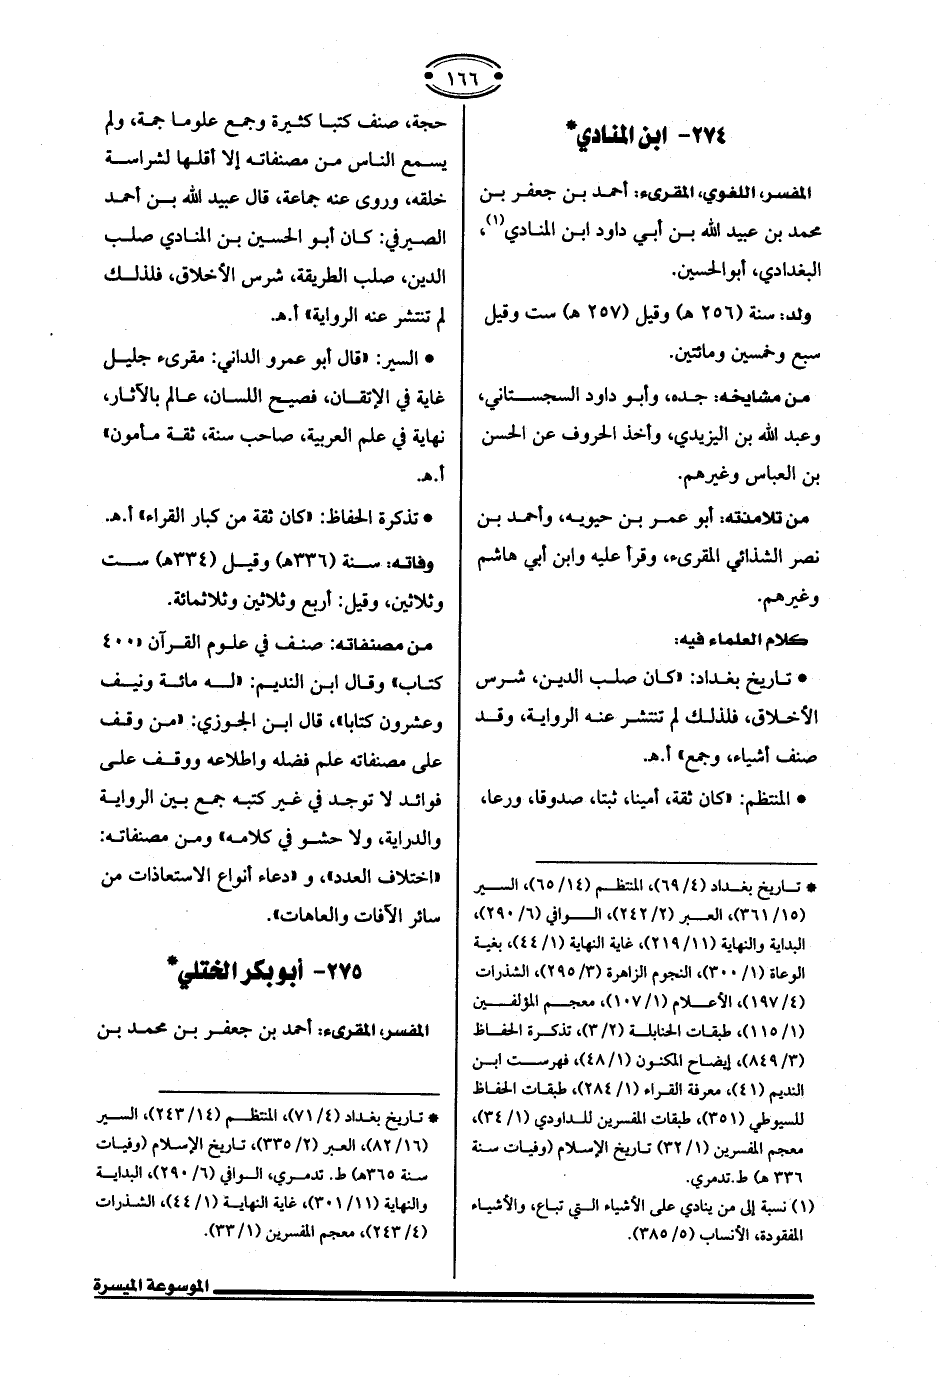 ١٦٦
٢٧٤- ابن المنادي*
المفسر، اللغوي، المقرىء: أحمد بن جعفر بن
محمد بن عبيد الله بن أبي داود ابن المنادي(١)،
البغدادي، أبو الحسين.
ولد: سنة (٢٥٦ هـ) وقيل (٢٥٧ هـ) ست وقيل
سبع وخمسين ومائتين.
من مشايخه: جده، وأبو داود السجستاني،
وعبد الله بن اليزيدي، وأخذ الحروف عن الحسن
بن العباس وغيرهم.
من تلامذته: أبو عمر بن حيويه، وأحمد بن
نصر الشذائي المقرىء، وقرأ عليه وابن أبي هاشم
وغيرهم.
كلام العلماء فيه:
• تاريخ بغداد: «كان صلب الدين، شرس
الأخلاق، فلذلك لم تنتشر عنه الرواية، وقد
صنف أشياء، وجمع» أ.هـ.
• المنتظم: «كان ثقة، أمينا، ثبتا، صدوقا، ورعا،
* تاريخ بغداد (٤/٦٩)، المنتظم (١٤/٦٥)، السير
(١٥/٣٦١)، العبر (٢/٢٤٢)، الوافي (٦/٢٩٠)،
البداية والنهاية (١١/٢١٩)، غاية النهاية (١/٤٤)، بغية
الوعاة (١/٣٠٠)، النجوم الزاهرة (٣/٢٩٥)، الشذرات
(٤/١٩٧)، الأعلام (١/١٠٧)، معجم المؤلفين
(١/١١٥)، طبقات الحنابلة (٢/٣)، تذكرة الحفاظ
(٣/٨٤٩)، إيضاح المكنون (١/٤٨)، فهرست ابن
النديم (٤١)، معرفة القراء (١/٢٨٤)، طبقات الحفاظ
للسيوطي (٣٥١)، طبقات المفسرين للداودي (١/٣٤)،
معجم المفسرين (١/٣٢) تاريخ الإسلام (وفيات سنة
٣٣٦ هـ) ط.تدمري.
(١) نسبة إلى من ينادي على الأشياء التي تباع، والأشياء
المفقودة، الأنساب (٥/٣٨٥).
حجة، صنف كتبا كثيرة وجمع علوما جمة، ولم
يسمع الناس من مصنفاته إلا أقلها لشراسة
خلقه، وروى عنه جماعة، قال عبيد الله بن أحمد
الصيرفي: كان أبو الحسين بن المنادي صلب
الدين، صلب الطريقة، شرس الأخلاق، فلذلك
لم تنتشر عنه الرواية» أ.هـ.
• السير: «قال أبو عمرو الداني: مقرىء جليل
غاية في الإتقان، فصيح اللسان، عالم بالآثار،
نهاية في علم العربية، صاحب سنة، ثقة مأمون»
أ.هـ.
• تذكرة الحفاظ: «كان ثقة من كبار القراء» أ.هـ.
وفاته: سنة (٣٣٦هـ) وقيل (٣٣٤هـ) ست
وثلاثين، وقيل: أربع وثلاثين وثلاثمائة.
من مصنفاته: صنف في علوم القرآن «٤٠٠
كتاب» وقال ابن النديم: «له مائة ونيف
وعشرون كتابا»، قال ابن الجوزي: «من وقف
على مصنفاته علم فضله واطلاعه ووقف على
فوائد لا توجد في غير كتبه جمع بين الرواية
والدراية، ولا حشو في كلامه» ومن مصنفاته:
«اختلاف العدد»، و «دعاء أنواع الاستعاذات من
سائر الآفات والعاهات».
٢٧٥- أبو بكر الختلي*
المفسر، المقرىء: أحمد بن جعفر بن محمد بن
* تاريخ بغداد (٤/٧١)، المنتظم (١٤/٢٤٣)، السير
(١٦/٨٢)، العبر (٢/٣٣٥)، تاريخ الإسلام (وفيات
سنة ٣٦٥هـ) ط. تدمري، الوافي (٦/٢٩٠)، البداية
والنهاية (١١/٣٠١)، غاية النهاية (١/٤٤)، الشذرات
(٤/٢٤٣)، معجم المفسرين (١/٣٣).
الموسوعة الميسرة